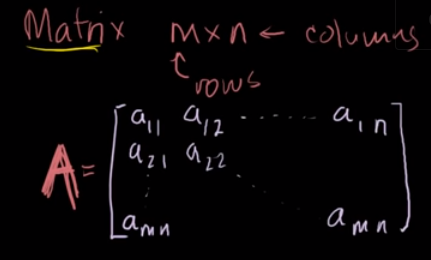 Matrix m×n ← columns
rows
a₁₁ a₁₂ ...... a₁n
A= a₂₁ a₂₂
aₘₙ aₘₙ